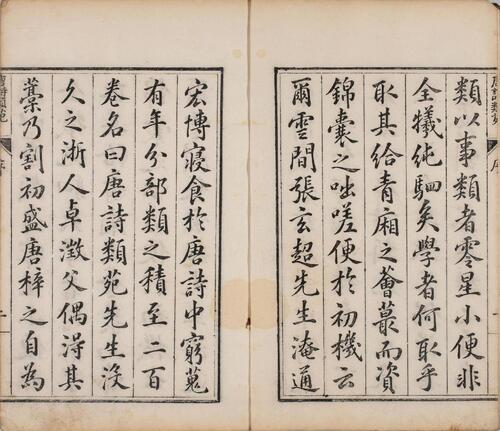 類以事類者零星小便非
全犧純駟矣學者何取乎
取其給青廂之薈蕞而資
錦囊之咄嗟便於初機云
爾雲間張玄超先生淹通
宏博寢食於唐詩中窮蒐
有年分部類之積至二百
卷名曰唐詩類苑先生沒
久之浙人卓澂父偶得其
藁乃割初盛唐梓之自為
唐詩類苑
序
二